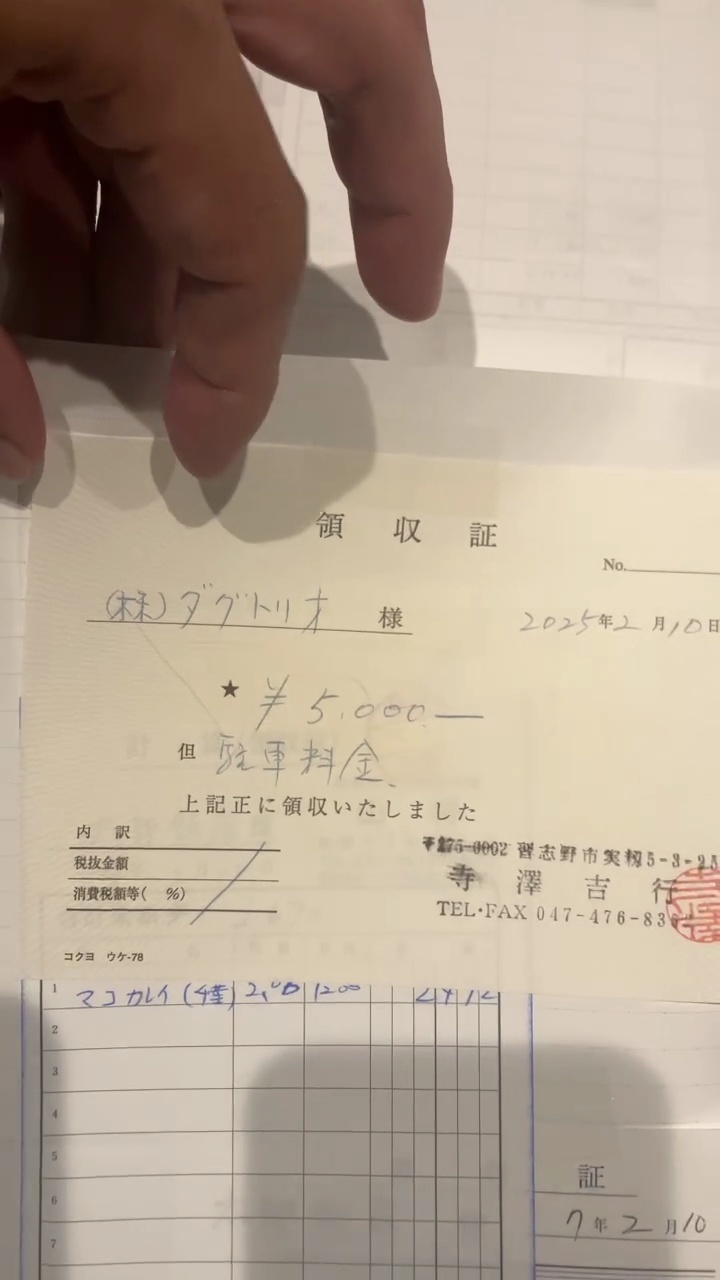 領収証
No.
(株)ダグトリオ 様
2025年2月10日
★ ¥5,000.—
但 駐車料金
上記正に領収いたしました
内訳
税抜金額
消費税額等( %)
〒275-0002 習志野市実籾5-3-25
寺澤吉行
TEL・FAX 047-476-836
コクヨ ウケ-78
1 マコカレイ(活)
2
3
4
5
6
7
証
7年2月10